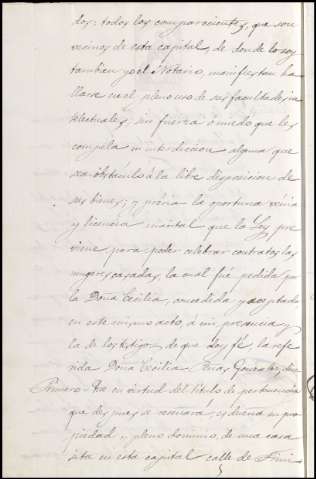 dos: todos los comparecientes, que son
vecinos de esta capital, de donde lo soy
tambien yo el Notario, manifiestan ha
llarse en el pleno uso de sus facultades in
telectuales, sin fuerza ó miedo que les
compela ni interdiccion alguna que
sea obstáculo á la libre disposicion de
sus bienes; y prévia la oportuna vénia
y licencia marital que la Ley pre
viene para poder celebrar contratos las
mugeres casadas, la cual fué pedida por
la Doña Cecilia, concedida y aceptada
en este mismo acto, á mi presencia y
la de los testigos, de que doy fé, la refe
rida Doña Cecilia Gonzalez, dice
Primero - Que en virtud del título de pertenencia
que despues se reseñara, es dueña en pro
piedad y pleno dominio, de una casa
sita en esta capital calle de